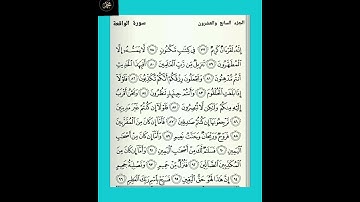 الجزء السابع والعشرون سورة الواقعة
إِنَّهُۥ لَقُرْءَانٌ كَرِيمٌ ٧٧ فِى كِتَٰبٍ مَّكْنُونٍ ٧٨ لَّا يَمَسُّهُۥٓ إِلَّا
ٱلْمُطَهَّرُونَ ٧٩ تَنزِيلٌ مِّن رَّبِّ ٱلْعَٰلَمِينَ ٨٠ أَفَبِهَٰذَا ٱلْحَدِيثِ
أَنتُم مُّدْهِنُونَ ٨١ وَتَجْعَلُونَ رِزْقَكُمْ أَنَّكُمْ تُكَذِّبُونَ ٨٢ فَلَوْلَآ
إِذَا بَلَغَتِ ٱلْحُلْقُومَ ٨٣ وَأَنتُمْ حِينَئِذٍ تَنظُرُونَ ٨٤ وَنَحْنُ أَقْرَبُ
إِلَيْهِ مِنكُمْ وَلَٰكِن لَّا تُبْصِرُونَ ٨٥ فَلَوْلَآ إِن كُنتُمْ غَيْرَ مَدِينِينَ
٨٦ تَرْجِعُونَهَآ إِن كُنتُمْ صَٰدِقِينَ ٨٧ فَأَمَّآ إِن كَانَ مِنَ ٱلْمُقَرَّبِينَ
٨٨ فَرَوْحٌ وَرَيْحَانٌ وَجَنَّتُ نَعِيمٍ ٨٩ وَأَمَّآ إِن كَانَ مِنْ أَصْحَٰبِ
ٱلْيَمِينِ ٩٠ فَسَلَٰمٌ لَّكَ مِنْ أَصْحَٰبِ ٱلْيَمِينِ ٩١ وَأَمَّآ إِن كَانَ مِنَ
ٱلْمُكَذِّبِينَ ٱلضَّآلِّينَ ٩٢ فَنُزُلٌ مِّنْ حَمِيمٍ ٩٣ وَتَصْلِيَةُ جَحِيمٍ
٩٤ إِنَّ هَٰذَا لَهُوَ حَقُّ ٱلْيَقِينِ ٩٥ فَسَبِّحْ بِٱسْمِ رَبِّكَ ٱلْعَظِيمِ ٩٦